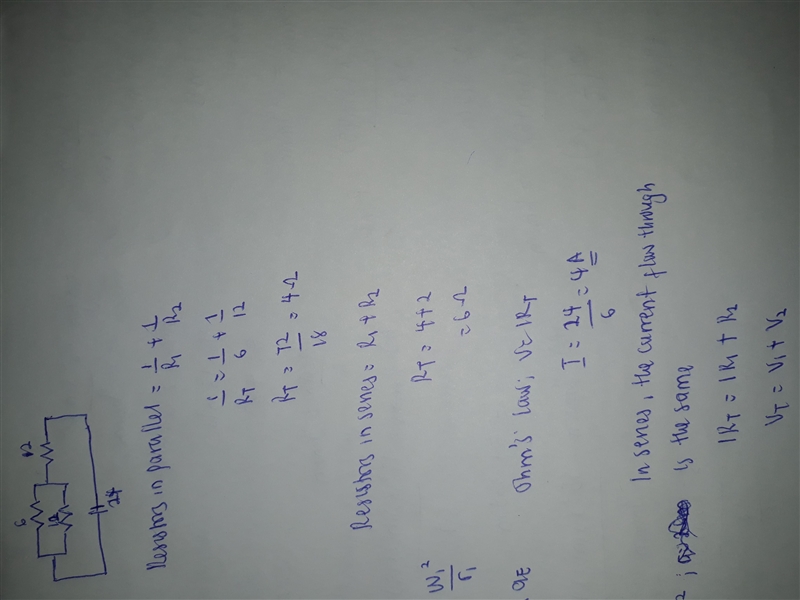 6
12
2
24
Resistors in parallel = 1/R1 + 1/R2
1/RT = 1/6 + 1/12
RT = 72/18 = 4Ω
Resistors in series = R1 + R2
RT = 4+2
= 6Ω
W1²/r1
Ohm's law; V=IRT
I = 24/6 = 4A
In series, the current flow through
is the same
IRT = IR1 + R2
VT = V1 + V2